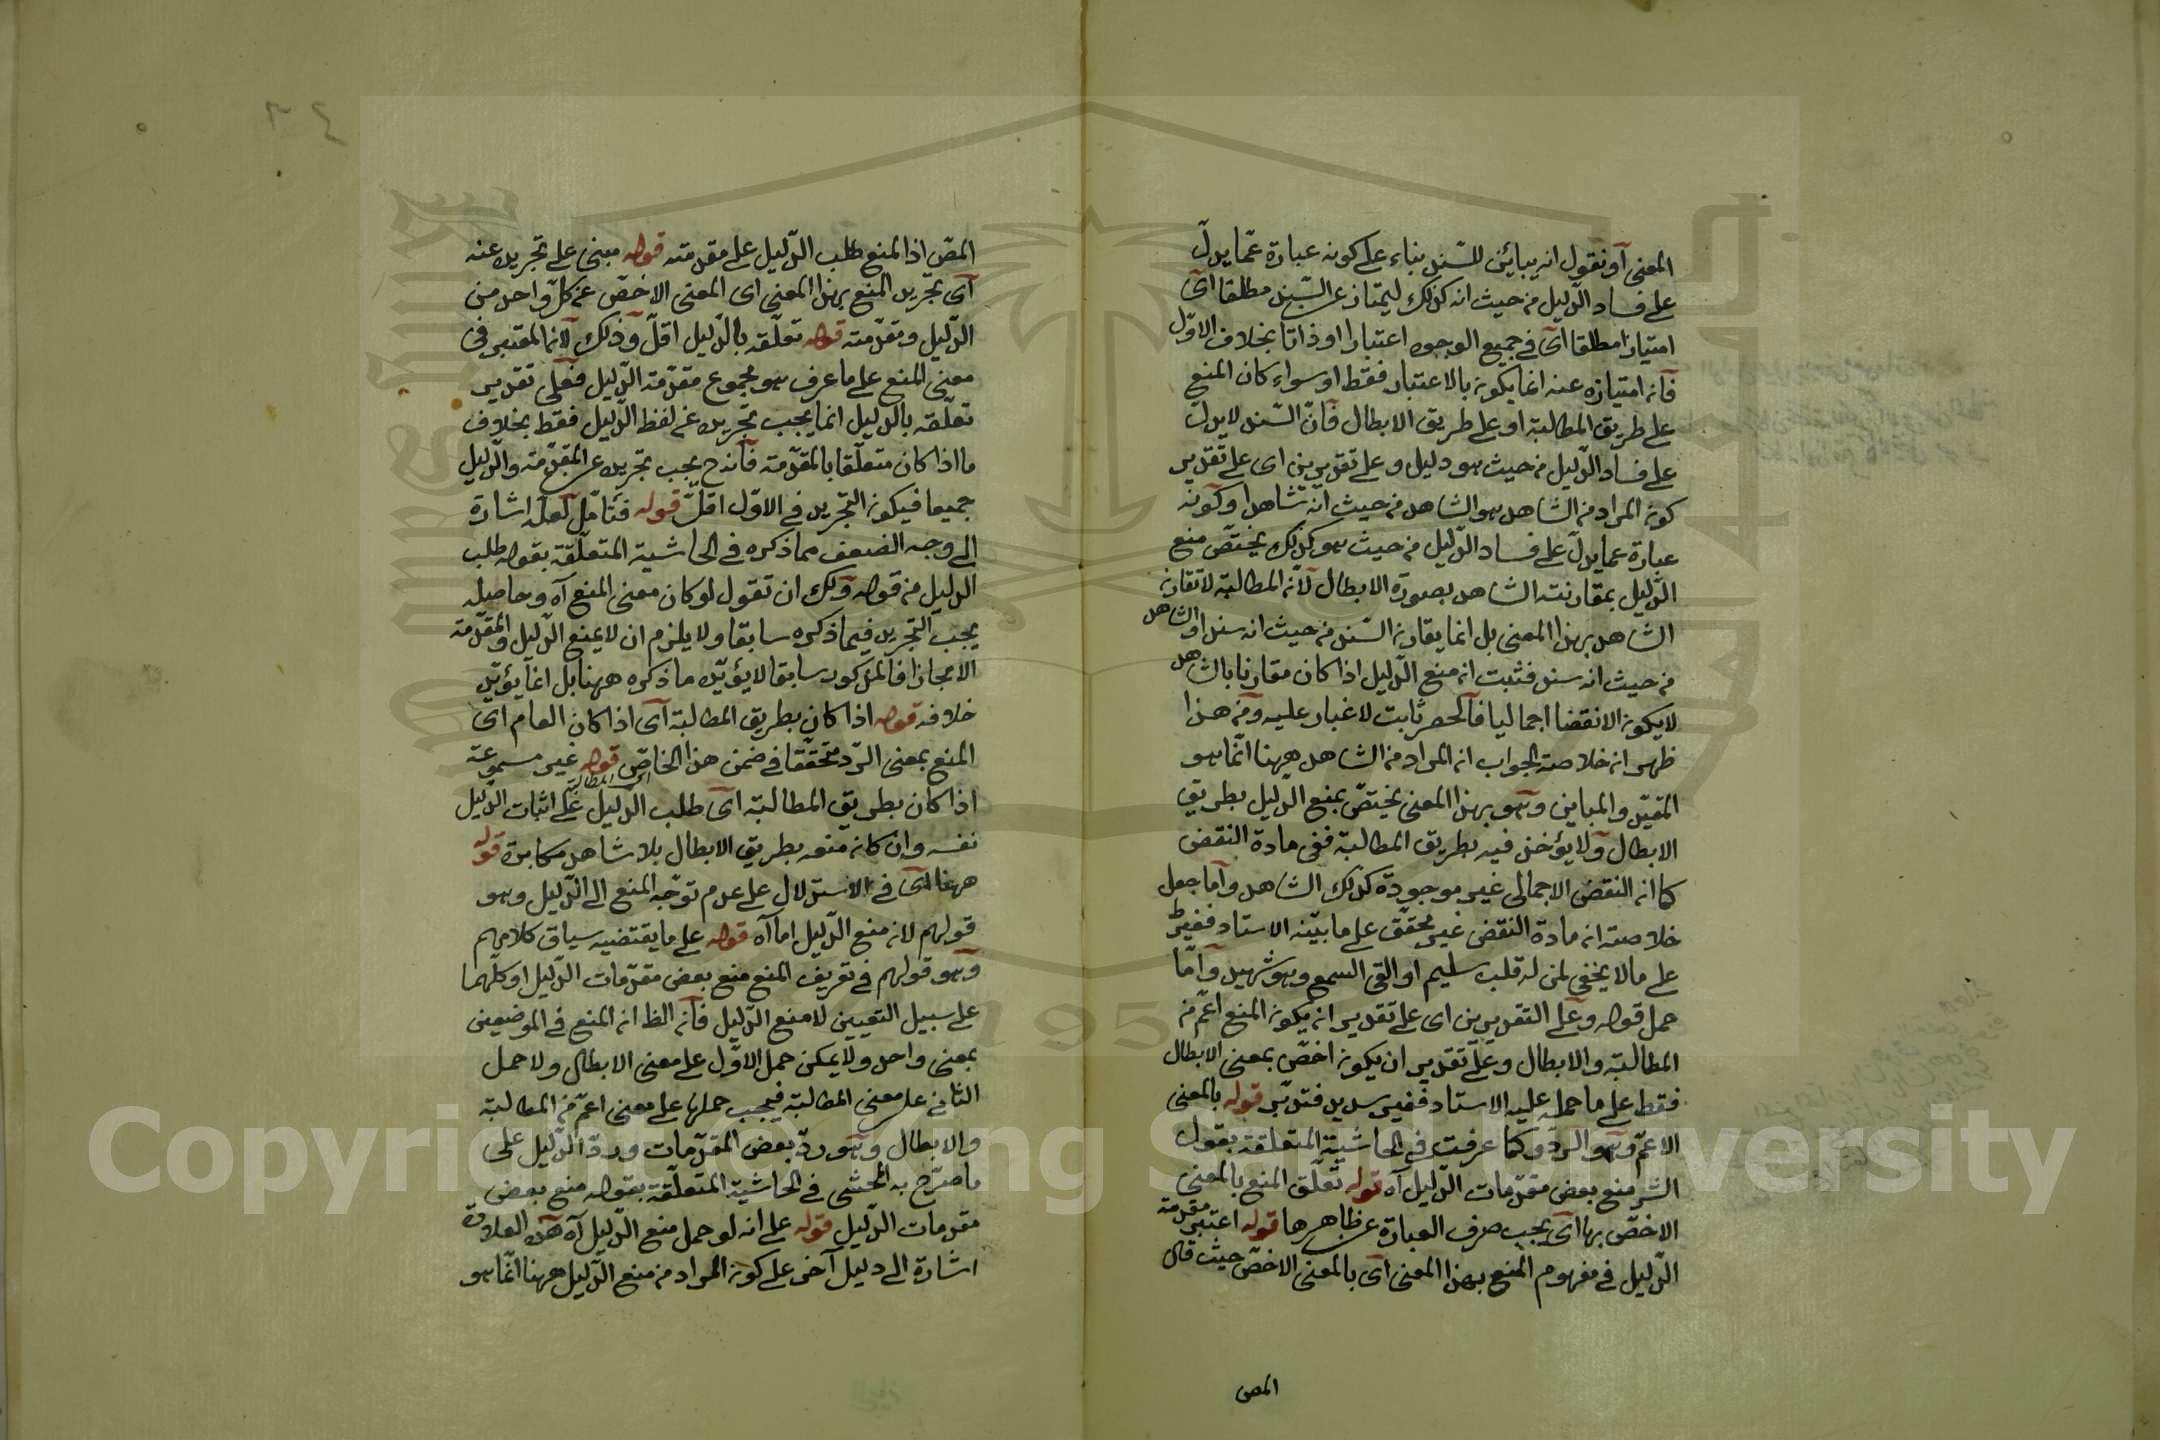 المعنى او نقول انه يباين للسند بناء على كونه عبارة عمّا يدلّ
على فساد الدّليل من حيث انه كذلك ليمتاز عن السّند مطلقا اى
امتيازا مطلقا اى فى جميع الوجوه اعتبارا او ذاتا بخلاف الاوّل
فانه امتيازه عنه انما يكون بالاعتبار فقط او سواء كان المنع
على طريق المطالبة او على طريق الابطال فانّ السّند لا يدلّ
على فساد الدّليل من حيث هو دليل و على تقديرين اى على تقدير
كون المراد من الشاهد هو الشاهد من حيث انه شاهد او كونه
عبارة عما يدلّ على فساد الدّليل من حيث هو كذلك يختصّ منع
الدّليل بمقارنته الشاهد بصورة الابطال لانّه المطالبة لا تقارنه
الشاهد بهذا المعنى بل انما يقارنه السّند من حيث انه سند او الشاهد
من حيث انه سند فثبت انه منع الدّليل اذا كان مقارنا بالشاهد
لا يكون الا نقضا اجماليا فالحصر ثابت لا غبار عليه و من هذا
ظهر انه خلاصة الجواب انه المراد من الشاهد ههنا انّما هو
المقيّد والمباين و هو بهذا المعنى يختصّ بمنع الدّليل بطريق
الابطال و لا يؤخذ فيه بطريق المطالبة ففى مادة النقض
كما انه النقض الاجمالى غير موجودة كذلك الشاهد و اما جعل
خلاصته انه مادة النقض غير محقّق على ما بيّنه الاستاد فغير
على ما لا يخفى لمن له قلب سليم او القى السمع و هو شهيد و امّا
حمل قوله و على التقديرين اى على تقدير انه يكون المنع اعمّ من
المطالبة والابطال و على تقدير ان يكون اخصّ بمعنى الابطال
فقط على ما حمله عليه الاستاد فغير سديد فتدبّر قوله بالمعنى
الاعمّ و هو الردّ و كما عرفت فى الحاشية المتعلقة بقول
الشر منع بعض مقدّمات الدّليل آه قوله تعلّق المنع بالمعنى
الاخصّ بها اى يجب صرف العبارة عن ظاهرها قوله اعتبر مقدّمة
الدّليل فى مفهوم المنع بهذا المعنى اى بالمعنى الاخصّ حيث قال
المص
المصّ اذ المنع طلب الدّليل على مقدمته قوله مبنى على تجريده عنه
اى تجريد المنع بهذا المعنى اى المعنى الاخصّ عن كلّ واحد من
الدّليل و مقدّمته قوله تعلّقه بالدّليل اقلّ و ذلك لانه المعتبر فى
معنى المنع على ما عرف هو مجموع مقدّمة الدّليل فعلى تقدير
تعلّقه بالدليل انما يجب تجريده عن لفظ الدّليل فقط بخلاف
ما اذا كان متعلّقا بالمقدّمة فانه ح يجب تجريده عن المقدّمة والدّليل
جميعا فيكون التجريد فى الاوّل اقلّ قوله فتامّل لعلّه اشارة
الى وجه الضعف مما ذكره فى الحاشية المتعلّقة بقوله طلب
الدليل من قوله و لك ان تقول لو كان معنى المنع آه و حاصله
يجب التجريد فيما ذكره سابقا و لا يلزم ان لا يمنع الدّليل والمقدّمة
الا مجازا فالمذكور سابقا لا يؤيّد ما ذكره ههنا بل انما يؤيّد
خلافه قوله اذا كان بطريق المطالبة اى اذا كان العام اى
المنع بمعنى الردّ متحقّقا فى ضمن هذا الخاصّ قوله غير مسموعة
اذا كان بطريق المطالبة اى طلب الدليل على اثبات الدّليل
نفسه و ان كانه منعه بطريق الابطال بلا شاهد مكابرة قوله
ههنا اى فى الاستدلال على عدم توجّه المنع الى الدّليل و هو
قولهم لانه منع الدّليل اما آه قوله على ما يقتضيه سياق كلامهم
و هو قولهم فى تعريف المنع منع بعض مقدّمات الدّليل او كلّهما
على سبيل التعيين لا منع الدّليل فانه الظ انه المنع فى الموضعين
بمعنى واحد و لا يمكن حمل الاوّل على معنى الابطال و لا حمل
الثانى على معنى المطالبة فيجب حملها على معنى اعمّ من المطالبة
والابطال و هو ردّ بعض المقدّمات و ردّ الدّليل على
ما صرّح به المحشى فى الحاشية المتعلّقة بقوله منع بعض
مقدمات الدّليل قوله على انه لو حمل منع الدّليل آه هذه العلاوة
اشارة الى دليل آخر على كون المراد من منع الدّليل ههنا انّما هو
Copyright © King Saud University
1957